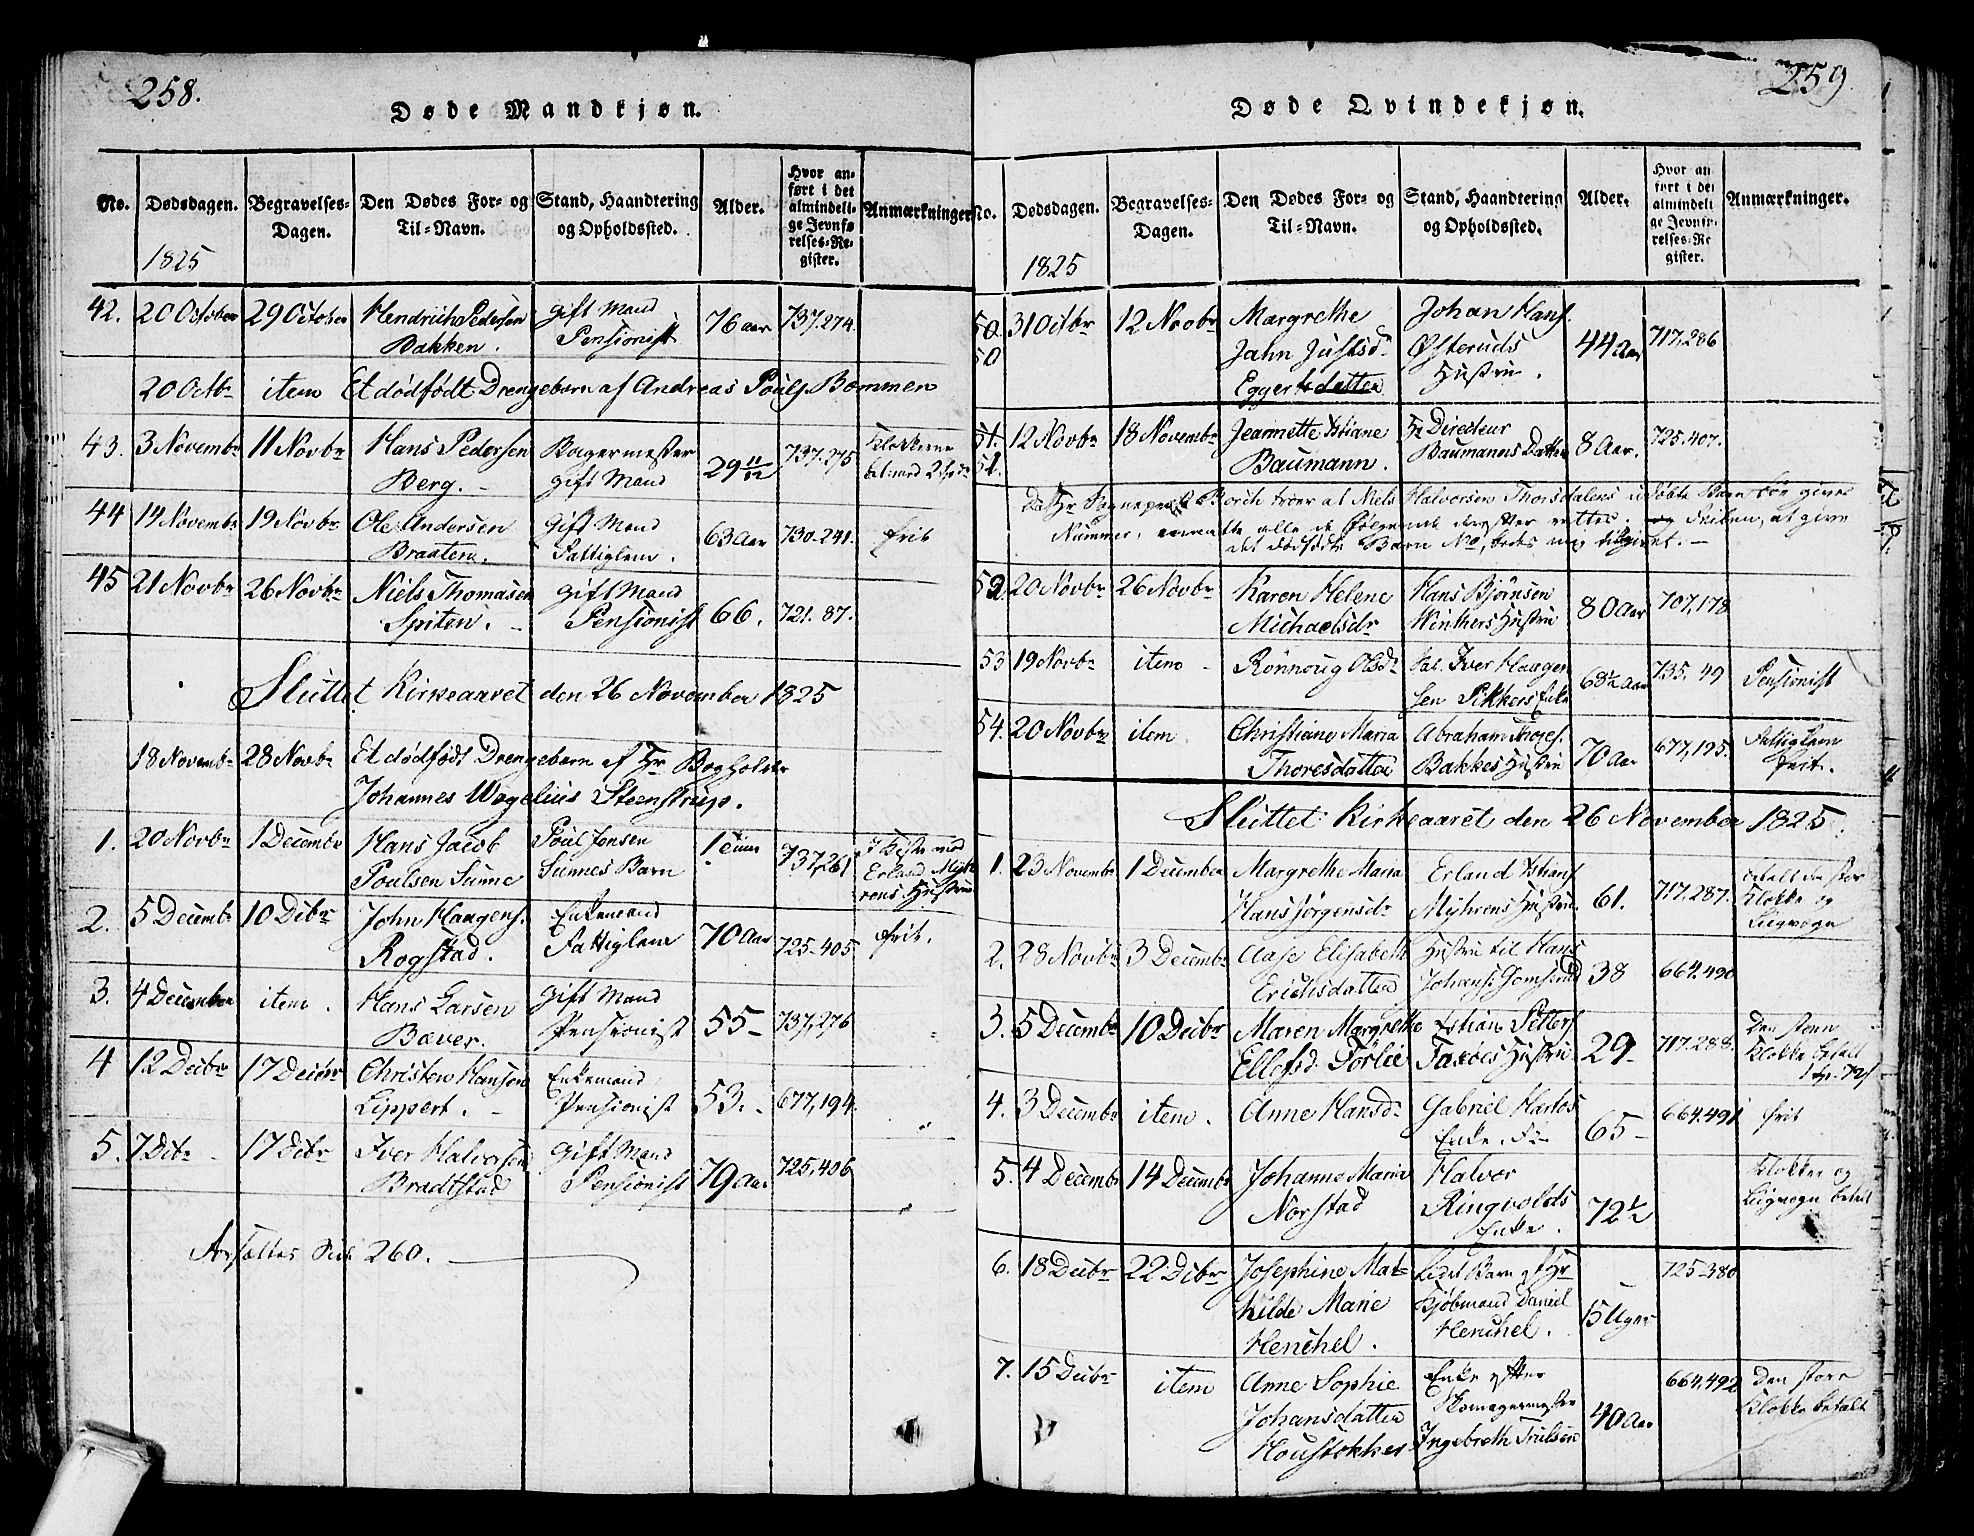 258.
Døde Mandkjøn.
No. Dødsdagen. Begravelses=Dagen. Den Dødes For= og Til=Navn. Stand, Haandtering og Opholdssted. Alder. Hvor anført i det almindelige Jevnførelses=Register. Anmærkninger
1825
42. 20 October 29 October Hendrich Pedersen Gift Mand 76 aar 737.274.
Bakken. Pensionist
20 Octbr item Et dödfödt Drengebarn af Andreas Pouls. Bommen
43. 3 Novembr 11 Novbr Hans Pedersen Bagermester 29 11/12 737.275 Klokkerne
Berg. Gift Mand
44 14 Novembr 19 Novbr Ole Andersen Gift Mand 63 Aar 730-241. frit
Braaten. Fattiglem.
45 21 Novbr 26 Novbr Niels Thomasen Gift Mand 66. 721. 87.
Spiten. Pensionist
Sluttet Kirkeaaret den 26 November 1825
18 Novembr 28 Novbr Et dödfödt Drengebarn af Hr Bogholder
Johannes Wegelius Steenstrup.
1. 20 Novbr 1 Decembr Hans Jacob Poul Jensen 1 Time 737,261
Poulsen Sunne Sunnes Barn
2. 5 Decembr 10 Decbr John Haagens. Enkemand 70 Aar 725-405 frit.
Rogstad. Fattiglem
3. 4 December item. Hans Larsen Gift Mand 55- 737,276
Bæver. Pensionist
4 12 Decbr 17 Decbr Christen Hansen Enkemand 53.- 677,194.
Lippert. Pensionist
5. 7 Decbr 17 Decbr Iver Halvorsen Gift Mand 79 Aar 725,406
Bradtstad Pensionist
Fortsættes Side 260.
259
Døde Qvindekjøn.
No. Dødsdagen. Begravelses=Dagen. Den Dødes For= og Til=Navn. Stand, Haandtering og Opholdssted. Alder. Hvor anført i det almindelige Jevnførelses=Register. Anmærkninger.
1825
50. 31 Octbr 12 Novbr Margrethe Johan Hans. 44 Aar 717,286
50 Jahn Justsdr Østeruds
Eggertsdatter Hustru.
51. 12 Novbr 18 Novembr Jeannette Xstiane Hr Directeur 8 Aar. 725.407.
51. Baumann. Baumanns Datter
Da Hr Sognepræst Borch troer at Niels Halvorsen Thorsdalens udöbte Barn bör gives
Nummer, alle de Fölgende derefter rettes. og Feilen, at give
det dödfödte Barn No, bedes mig tilgivet.-
52 20 Novbr 26 Novbr Karen Helene Hans Bjönsen 80 Aar 707,178
Michaelsdr Winthers Hustru
53 19 Novbr item Rönnoug Olsdr Iver Haagen 68½ Aar 735. 49 Pensionist
sen Pikkers Enke
54. 20 Novbr item Christiane Maria Abraham Thores. 70 Aar 677,195. Fattiglem
Thoresdatter Bakkes Hustru frit.
Sluttet Kirkeaaret den 26 November 1825.
1. 23 Novembr 1 December Margrethe Maria Erland Xstians. 61. 717.287. betalt den stor
Hans Jörgensdr Myhrens Hustru Klokke og
Liigvogn
2. 28 Novbr 3 Decembr Aase Elisabeth Hustru til Hans 38 664.490
Erichsdatter Johans. Jomsrud
3. 5 Decembr 10 Decbr Maren Margrethe Xstian Petters. 29- 717.288. Den store
Ellefsd. Förlie Hustru Klokke betalt
4. 3 Decembr item. Anne Hansdr Gabriel Hartos 65- 664.491 frit
Enke.
5. 4 Decembr 14 Decembr Johanne Maria Halvor 72½ Klokker og
Norstad Ringvolds Liigvogn betalt
Enke.
6. 18 Decbr 22 Decbr Josephine Mat= Barn af Hr 15 Uger 725-380
hilde Marie Kjöbmand Daniel
Henchel. Henchel.
7. 15 Decbr item Anne Sophie Enke efter 40 Aar 664,492 Den store
Johansdatter Skomagermester Klokke betalt
Houstokker Ingebreth Trulsen